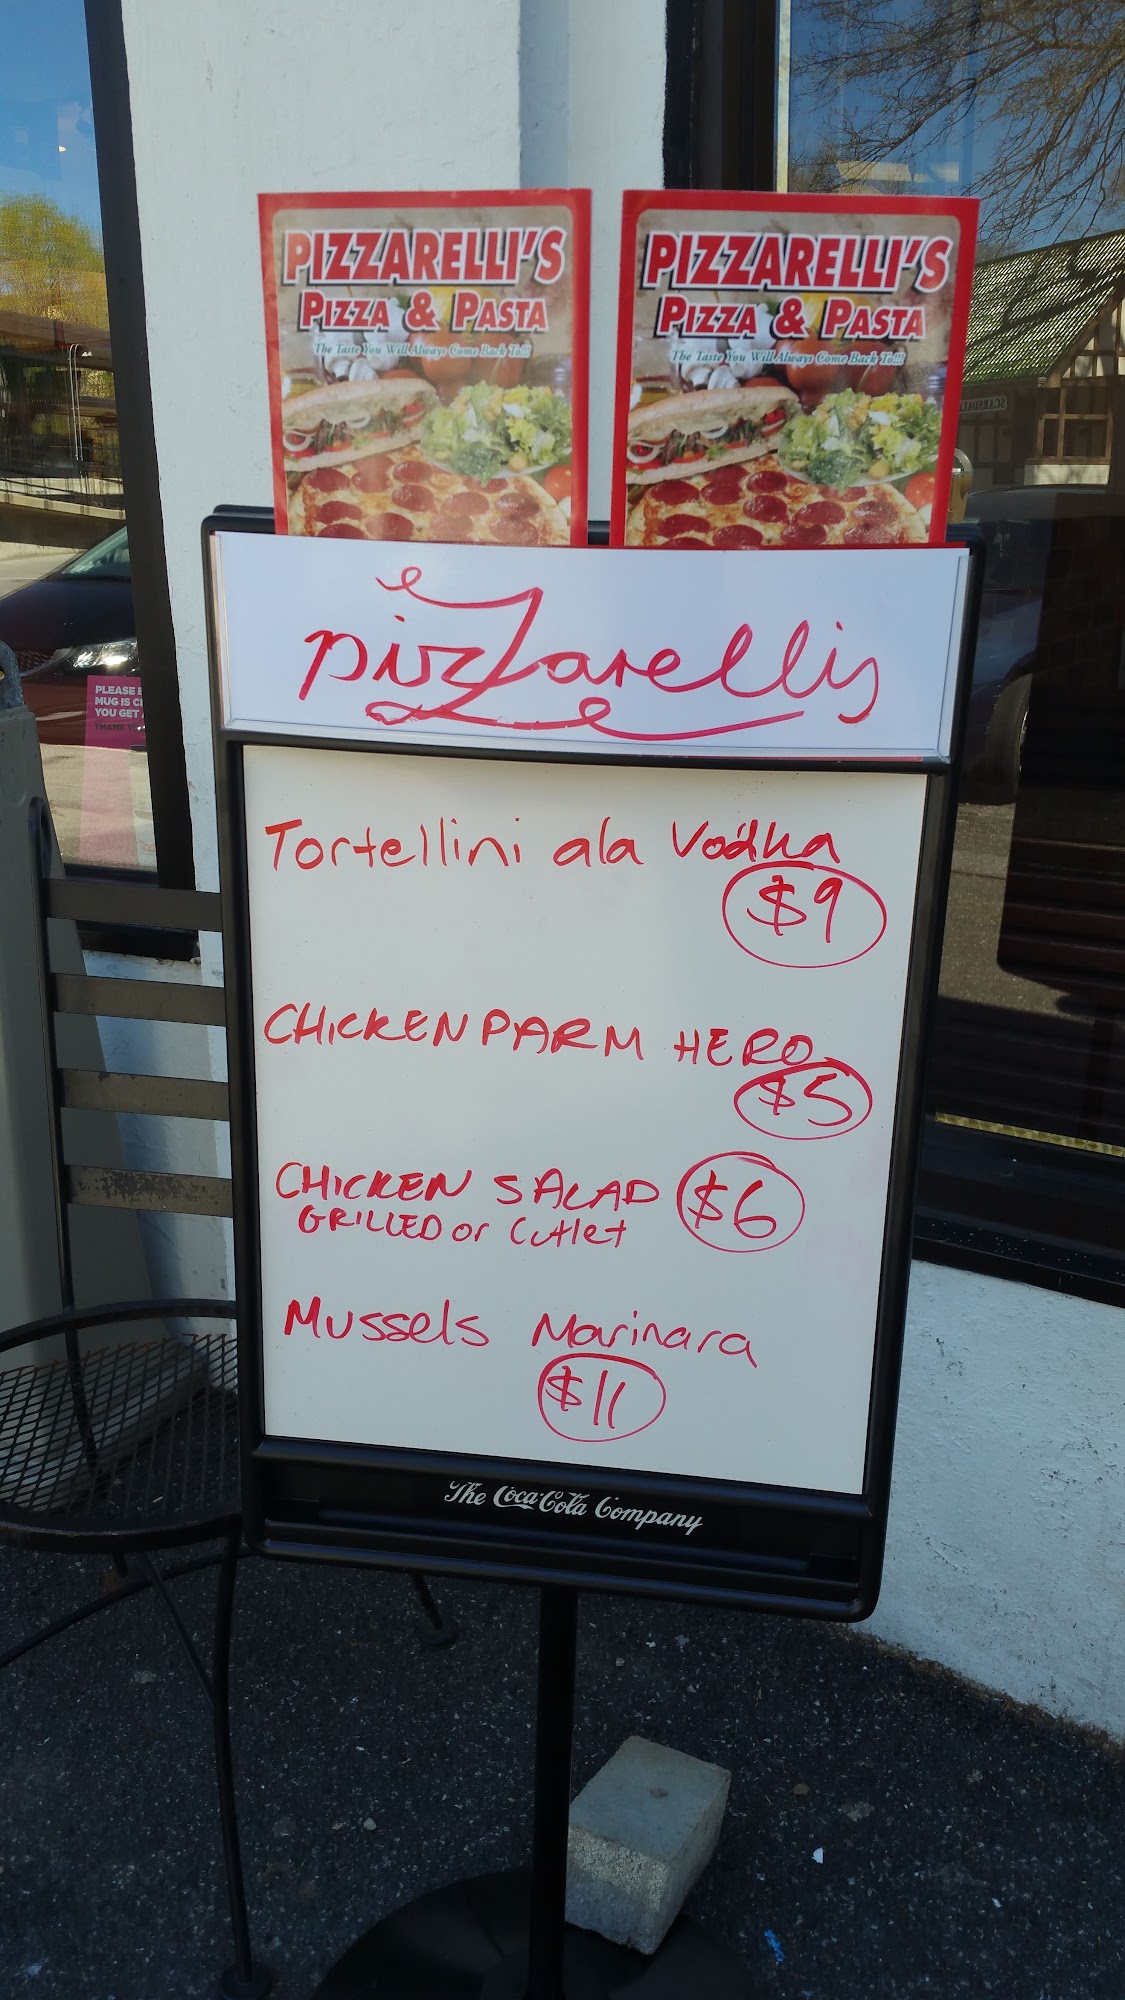 PIZZARELLI'S
PIZZA & PASTA
The Taste You Will Always Come Back To!!!
PIZZARELLI'S
PIZZA & PASTA
The Taste You Will Always Come Back To!!!
pizzarellis
Tortellini ala Vodka
$9
CHICKEN PARM HERO
$5
CHICKEN SALAD $6
GRILLED or Cutlet
Mussels Marinara
$11
The Coca-Cola Company
PLEASE
MUG IS
YOU GET
THANK